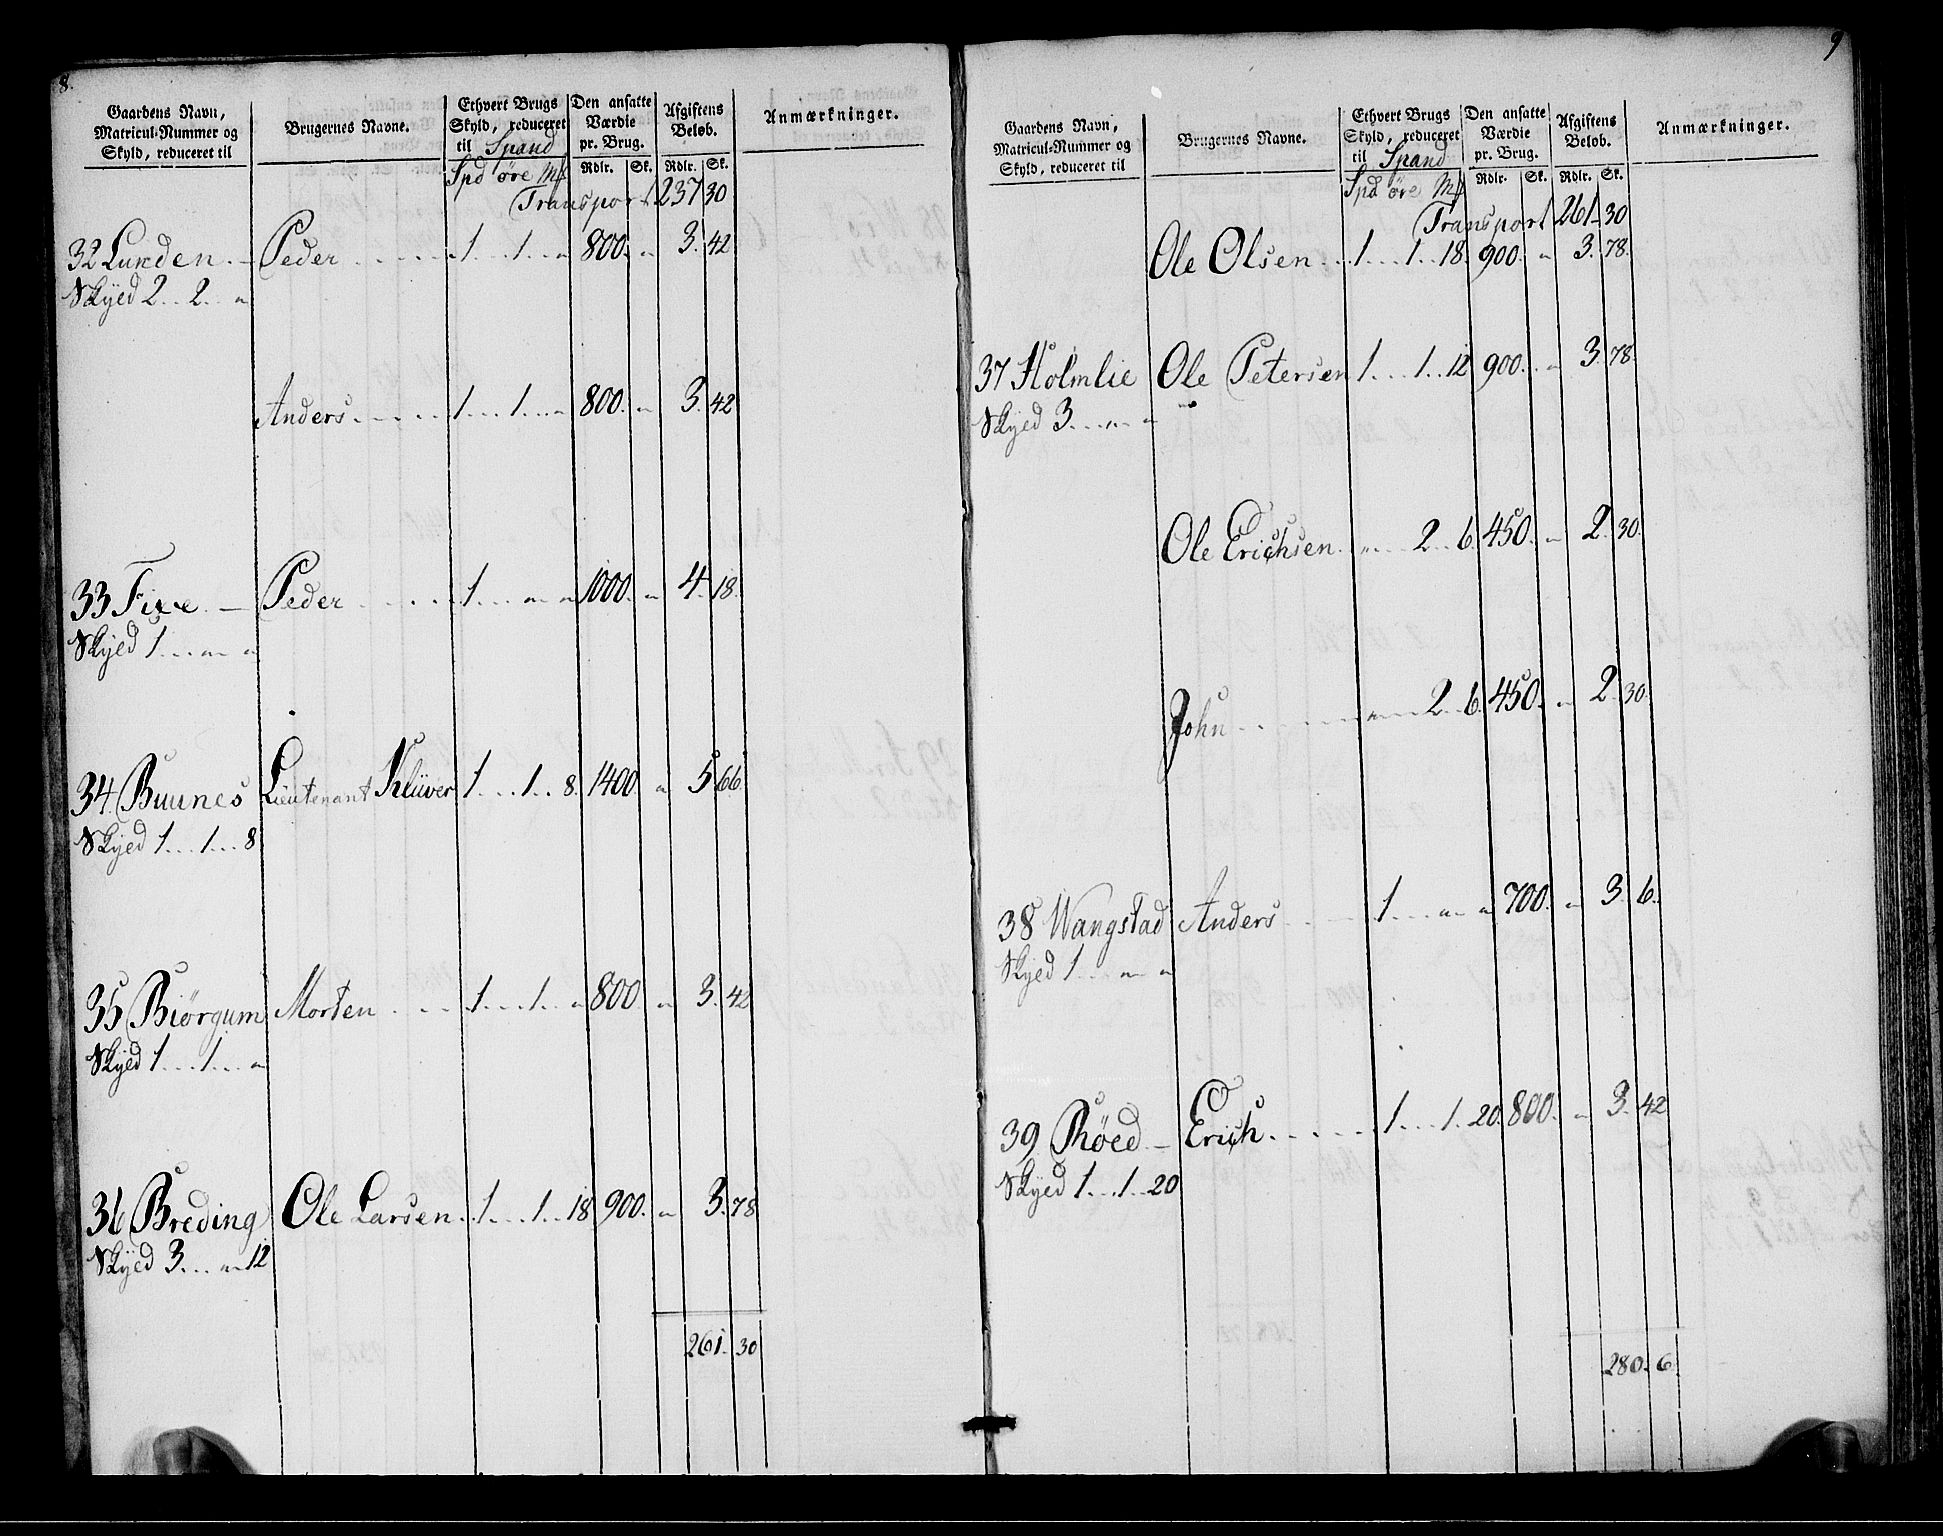 8.
Gaardens Navn, Matricul-Nummer og Skyld, reduceret til | Brugernes Navne. | Ethvert Brugs Skyld, reduceret til Spand | Den ansatte Værdie pr. Brug. | Afgiftens Beløb. | Anmærkninger.
Spd øre Mk | Rdlr. Sk. | Rdlr. Sk.
Transport 237 30
32 Lunden Peder 1 1 " 800. " 3. 42
Skyed 2 2 "
Anders 1 1 " 800. " 3. 42
33 Fixe Peder 1 " " 1000. " 4. 18.
Skyed 1 " "
34 Buunes Lieutenant Klüver 1 1 8. 1400. " 5 66
Skyed 1 1 8
35 Biörgum Morten 1 1 " 800 " 3. 42
Skyed 1 1 "
36 Breding Ole Larsen 1 1 18 900. " 3. 78
Skyed 3 " 12
261. 30
9
Gaardens Navn, Matricul-Nummer og Skyld, reduceret til | Brugernes Navne. | Ethvert Brugs Skyld, reduceret til Spand | Den ansatte Værdie pr. Brug. | Afgiftens Beløb. | Anmærkninger.
Spd øre Mk | Rdlr. Sk. | Rdlr. Sk.
Transport 261 30
Ole Olsen 1 1 18. 900. " 3. 78.
37 Holmlie Ole Petersen 1 1 12 900. " 3. 78.
Skyed 3 " "
Ole Erichsen " 2 6. 450. " 2. 30.
John " 2 6. 450. " 2. 30.
38 Wangstad Anders 1 " " 700. " 3. 6.
Skyed 1 " "
39 Röed Erich 1 1 20. 800. " 3. 42
Skyed 1 1 20
280. 6.